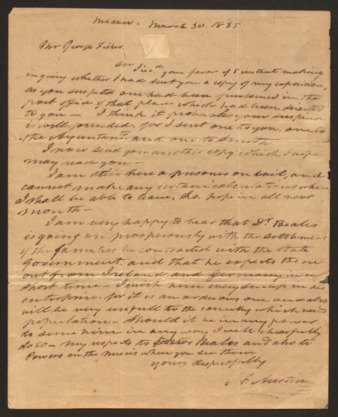 Mexico March 30. 1835
Mr George Fisher
Sir I recd your favor of 5 instant making
inquiry whether I had sent you a copy of my exposition,
as you suspected one had been put in the
post office of that place which had been directed
to you — I think it probable your suspicion
is well founded, for I sent one to you, one to
the Ayuntamto and one to Smith
I now send you another copy which I hope
may reach you —
I am still here a prisoner on bail, and
cannot make any certain calculations when
I shall be able to leave, tho hope in all next
month —
I am very happy to hear that Dr Beales
is going on prosperously with the settlement
of the families he contracted with the state
Government, and that he expects them
out from Ireland and Germany in a
short time — I wish him every success in his
enterprise, for it is an arduous one and also
will be very useful to the country which needs
population — Should it be in my power
to serve him in any way, I will cheerfully
do so — my respects to Doctor Beales and also to
Powers on the Nueces when you see them
yours respectfully
S. F. Austin